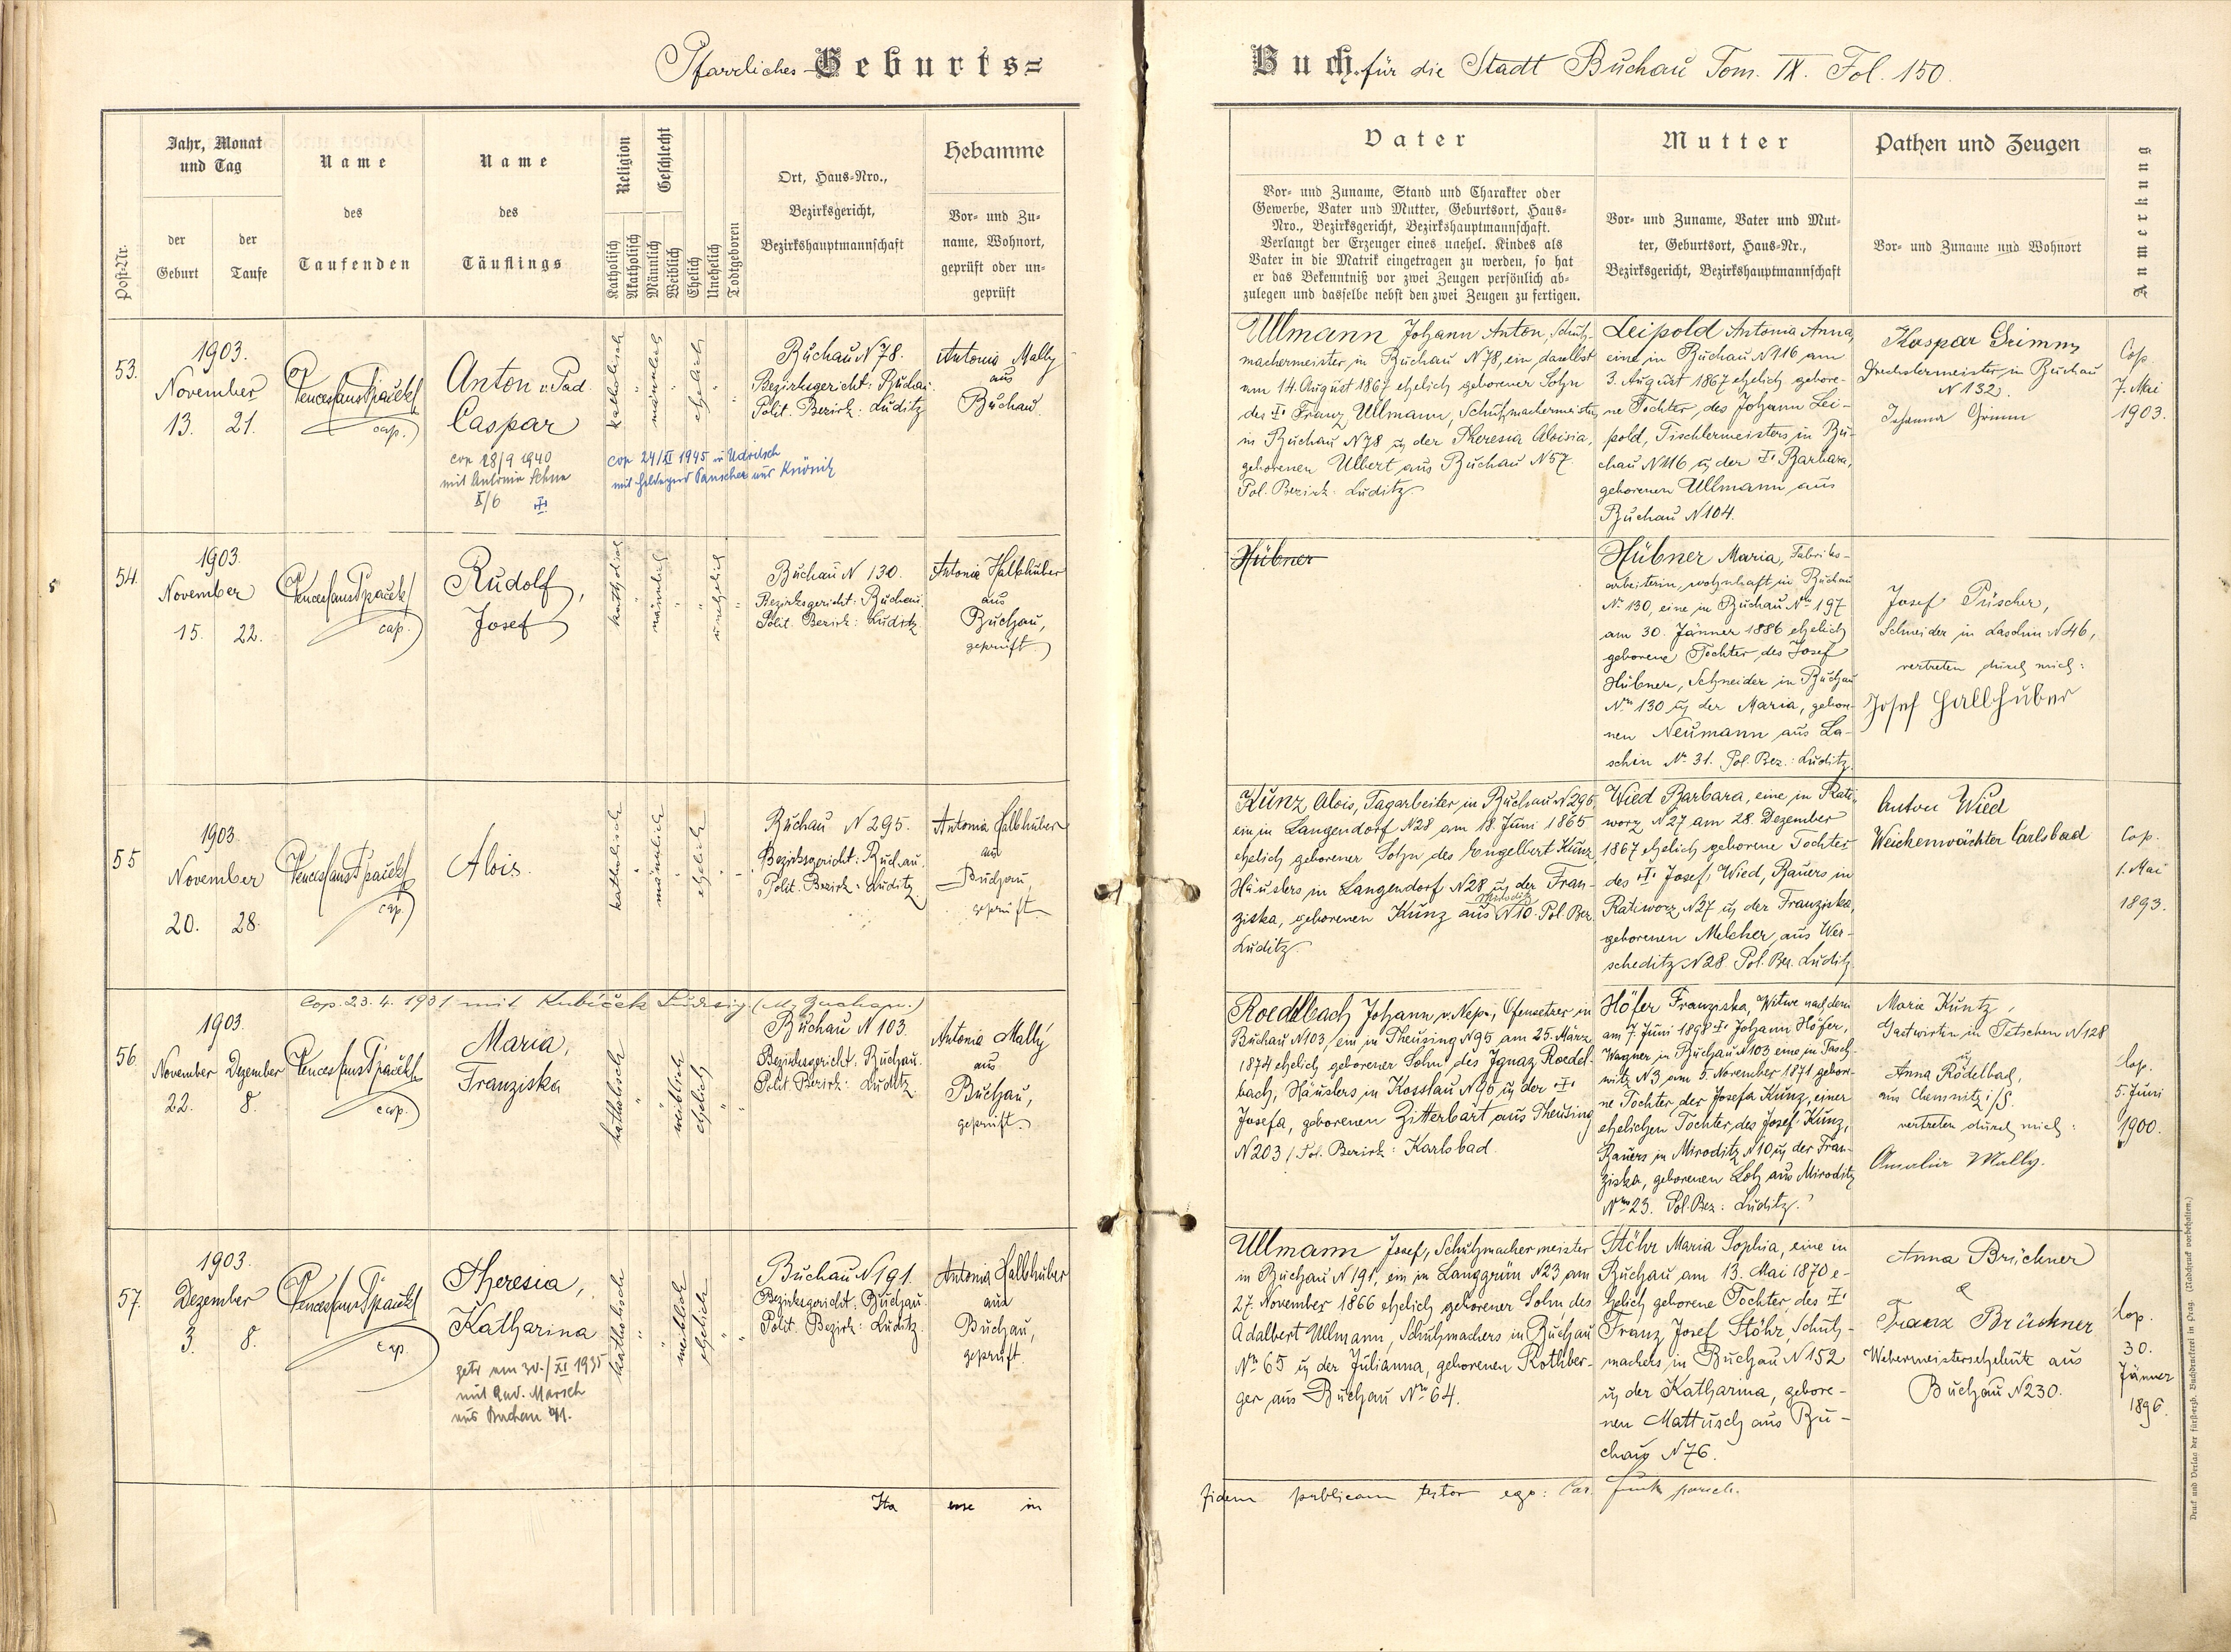 Pfarrliches Geburts=
Buch für die Stadt Buchau Tom. IX. Fol. 150.
Post-Nr.
Jahr, Monat
und Tag
der
Geburt
der
Taufe
Name
des
Taufenden
Name
des
Täuflings
Religion
Katholisch
Akatholisch
Geschlecht
Männlich
Weiblich
Ehelich
Unehelich
Todtgeboren
Ort, Haus-Nro.,
Bezirksgericht,
Bezirkshauptmannschaft
Hebamme
Vor- und Zu-
name, Wohnort,
geprüft oder un-
geprüft
Vater
Vor- und Zuname, Stand und Charakter oder
Gewerbe, Vater und Mutter, Geburtsort, Haus-
Nro., Bezirksgericht, Bezirkshauptmannschaft.
Verlangt der Erzeuger eines unehel. Kindes als
Vater in die Matrik eingetragen zu werden, so hat
er das Bekenntniß vor zwei Zeugen persönlich ab-
zulegen und dasselbe nebst den zwei Zeugen zu fertigen.
Mutter
Vor- und Zuname, Vater und Mut-
ter, Geburtsort, Haus-Nr.,
Bezirksgericht, Bezirkshauptmannschaft
Pathen und Zeugen
Vor- und Zuname und Wohnort
Anmerkung
53.
1903.
November
13. 21.
cap.
Anton v. Pad.
Caspar
cop 28/9 1940
mit Antonia
X/6
katholisch
männlich
ehelich
cop 24/XI 1945 in Udritsch
mit Hildegard Pauscher aus
Buchau N 78.
Bezirksgericht: Buchau.
Polit. Bezirk: Luditz
Antonia Mally
aus
Buchau.
Ullmann Johann Anton, Schuh-
machermeister in Buchau N 78, ein daselbst
am 14. August 1867 ehelich geborener Sohn
des † Franz Ullmann, Schuhmachermeisters
in Buchau N 78 u. der Theresia Aloisia,
geborenen Ulbert aus Buchau N 57.
Pol. Bezirk: Luditz
Leipold Antonia Anna,
eine in Buchau N 116 am
3. August 1867 ehelich gebore-
ne Tochter des Johann Lei-
pold, Tischlermeisters in Bu-
chau N 116 u. der † Barbara,
geborenen Ullmann aus
Buchau N 104.
Kaspar Grimm
Drechslermeister in Buchau
N 132.
Johanna Grimm
Cop.
7. Mai
1903.
54.
1903.
November
15. 22.
cap.
Rudolf,
Josef
katholisch
männlich
unehelich
Buchau N 130.
Bezirksgericht: Buchau.
Polit. Bezirk: Luditz.
Antonia Hallhuber
aus
Buchau,
geprüft
Hübner
Hübner Maria, Fabriks-
arbeiterin, wohnhaft in Buchau
No 130, eine in Buchau Nro 197
am 30. Jänner 1886 ehelich
geborene Tochter des Josef
Hübner, Schneider in Buchau
Nro 130 u. der Maria, gebore-
nen Neumann aus La-
schin No 31. Pol. Bez.: Luditz.
Josef Püscher,
Schneider in Laschin N 46,
vertreten durch mich:
Josef Hallhuber
55
1903.
November
20. 28.
cap.
Alois.
katholisch
männlich
ehelich
Buchau N 295.
Bezirksgericht: Buchau.
Polit. Bezirk: Luditz
Antonia Hallhuber
aus
Buchau,
geprüft
Kunz Alois, Tagarbeiter in Buchau N 295,
ein in Langendorf N 28 am 18. Juni 1865
ehelich geborener Sohn des Engelbert Kunz,
Häuslers in Langendorf N 28 u. der Fran-
ziska, geborenen Kunz aus Miroditz N 10. Pol. Bez.
Luditz.
Wied Barbara, eine in Rati-
worz N 27 am 28. Dezember
1867 ehelich geborene Tochter
des † Josef Wied, Bauers in
Ratiworz N 27 u. der Franziska,
geborenen Melcher aus Wer-
scheditz N 28. Pol. Bez. Luditz.
Anton Wied
Weichenwächter Carlsbad
Cop.
1. Mai
1893.
Cop. 23. 4. 1931 mit Kubiček Ludwig
56.
1903.
November Dezember
22. 8.
cap.
Maria,
Franziska
katholisch
weiblich
ehelich
Buchau N 103.
Bezirksgericht: Buchau.
Polit. Bezirk: Luditz
Antonia Mally
aus
Buchau,
geprüft.
Roedlbach Johann v. Nep., Ofensetzer in
Buchau N 103, ein in Theusing N 95 am 25. März
1874 ehelich geborener Sohn des Ignaz Roedl-
bach, Häuslers in Kosslau N 95 u. der †
Josefa, geborenen Zitterbart aus Theusing
N 203 / Pol. Bezirk: Karlsbad.
Höfer Franziska, Witwe nach dem
am 7. Juni 1898 † Johann Höfer,
Wagner in Buchau N 103 eine in Tasch-
witz N 3 am 5. November 1871 gebore-
ne Tochter der Josefa Kunz, einer
ehelichen Tochter des Josef Kunz,
Bauers in Miroditz N 10 u. der Fran-
ziska, geborenen Lotz aus Miroditz
Nro 23. Pol. Bez: Luditz.
Marie Kuntz,
Gastwirtin in Tetschen N 128
u.
Anna Rödelbach,
aus Chemnitz i/S.
vertreten durch mich:
Amalia Mally.
Cop.
5. Juni
1900.
57.
1903.
Dezember
3. 8.
cap.
Theresia,
Katharina
getr am 30./XI 1935
mit Marsch
aus Buchau
katholisch
weiblich
ehelich
Buchau N 191.
Bezirksgericht: Buchau.
Polit. Bezirk: Luditz.
Antonia Hallhuber
aus
Buchau,
geprüft.
Ullmann Josef, Schuhmachermeister
in Buchau N 191, ein in Langgrün N 23 am
27. November 1866 ehelich geborener Sohn des
Adalbert Ullmann, Schuhmachers in Buchau
Nro 65 u. der Julianna, geborenen Rothber-
ger aus Buchau Nro 64.
Stöhr Maria Sophia, eine in
Buchau am 13. Mai 1870 e-
helich geborene Tochter des †
Franz Josef Stöhr, Schuh-
machers in Buchau N 152
u. der Katharina, gebore-
nen Mattusch aus Bu-
chau N 76.
Anna Brückner
&
Franz Brückner
Webermeisterseheleute aus
Buchau N 230.
Cop.
30.
Jänner
1896.
Ita esse in fidem publicam testor ego: Car. Funk paroch.
Druck und Verlag der fürsterzb. Buchdruckerei in Prag. (Nachdruck vorbehalten.)